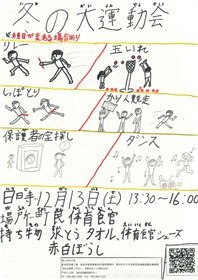 冬の大運動会
※種目が変わる場合あり
リレー
玉いれ
しっぽとり
かり人競走
保護者の宝探し
ダンス
日時 12月13日(土) 13:30~16:00
場所 町民体育館
持ち物 水とう タオル、体育館シューズ
赤白ぼうし